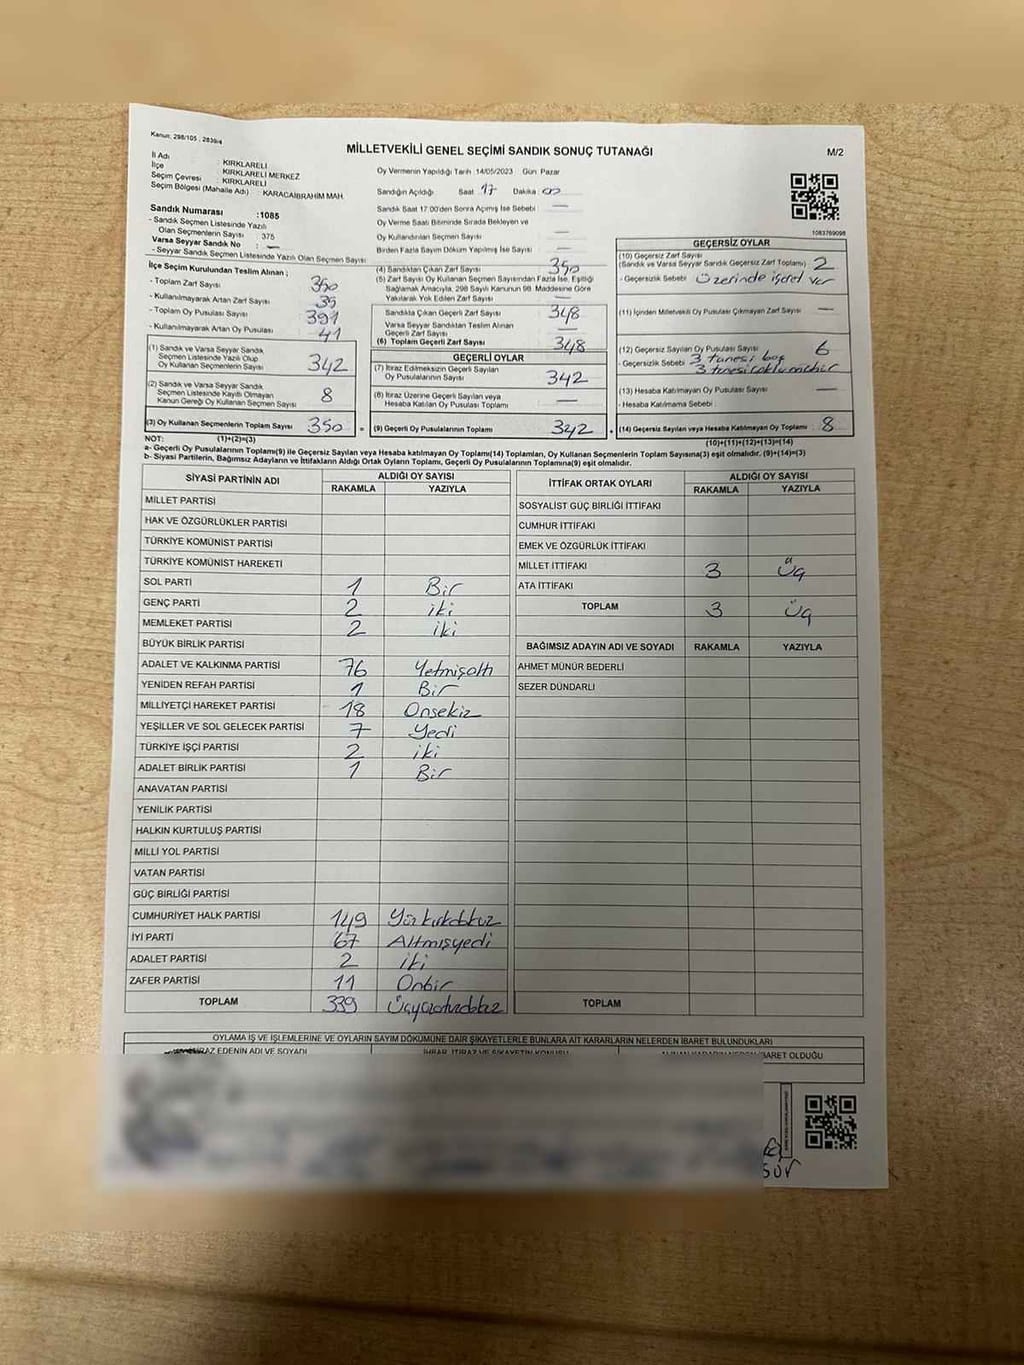 Kanun: 298/105 , 2839/4
MİLLETVEKİLİ GENEL SEÇİMİ SANDIK SONUÇ TUTANAĞI
M/2
İl Adı : KIRKLARELİ
İlçe : KIRKLARELİ MERKEZ
Seçim Çevresi : KIRKLARELİ
Seçim Bölgesi (Mahalle Adı) : KARACAİBRAHİM MAH.
Sandık Numarası :1085
- Sandık Seçmen Listesinde Yazılı
Olan Seçmenlerin Sayısı : 375
Varsa Seyyar Sandık No : —
- Seyyar Sandık Seçmen Listesinde Yazılı Olan Seçmen Sayısı
Oy Vermenin Yapıldığı Tarih :14/05/2023 Gün Pazar
Sandığın Açıldığı Saat 17 Dakika 00
Sandık Saat 17.00'den Sonra Açılmış İse Sebebi : —
Oy Verme Saati Bitiminde Sırada Bekleyen ve
Oy Kullandırılan Seçmen Sayısı —
Birden Fazla Sayım Döküm Yapılmış İse Sayısı —
1083769098
İlçe Seçim Kurulundan Teslim Alınan ;
- Toplam Zarf Sayısı 390
- Kullanılmayarak Artan Zarf Sayısı 39
- Toplam Oy Pusulası Sayısı 391
- Kullanılmayarak Artan Oy Pusulası 41
(1) Sandık ve Varsa Seyyar Sandık
Seçmen Listesinde Yazılı Olup
Oy Kullanan Seçmenlerin Sayısı 342
(2) Sandık ve Varsa Seyyar Sandık
Seçmen Listesinde Kayıtlı Olmayan
Kanun Gereği Oy Kullanan Seçmen Sayısı 8
(3) Oy Kullanan Seçmenlerin Toplam Sayısı 350
(4) Sandıktan Çıkan Zarf Sayısı 350
(5) Zarf Sayısı Oy Kullanan Seçmen Sayısından Fazla İse, Eşitliği
Sağlamak Amacıyla, 298 Sayılı Kanunun 98. Maddesine Göre
Yakılarak Yok Edilen Zarf Sayısı —
Sandıkta Çıkan Geçerli Zarf Sayısı 348
Varsa Seyyar Sandıktan Teslim Alınan
Geçerli Zarf Sayısı —
(6) Toplam Geçerli Zarf Sayısı 348
GEÇERLİ OYLAR
(7) İtiraz Edilmeksizin Geçerli Sayılan
Oy Pusulasının Sayısı 342
(8) İtiraz Üzerine Geçerli Sayılan veya
Hesaba Katılan Oy Pusulası Toplamı —
(9) Geçerli Oy Pusulalarının Toplamı 342
GEÇERSİZ OYLAR
(10) Geçersiz Zarf Sayısı
(Sandık ve Varsa Seyyar Sandık Geçersiz Zarf Toplamı) 2
- Geçersizlik Sebebi Üzerinde işaret var
(11) İçinden Milletvekili Oy Pusulası Çıkmayan Zarf Sayısı —
(12) Geçersiz Sayılan Oy Pusulası Sayısı 6
- Geçersizlik Sebebi 3 tanesi boş
3 tanesi çoklu mühür
(13) Hesaba Katılmayan Oy Pusulası Sayısı —
- Hesaba Katılmama Sebebi :
(14) Geçersiz Sayılan veya Hesaba Katılmayan Oy Toplamı 8
NOT: (1)+(2)=(3)
(10)+(11)+(12)+(13)=(14)
a- Geçerli Oy Pusulalarının Toplamı(9) ile Geçersiz Sayılan veya Hesaba katılmayan Oy Toplamı(14) Toplamları, Oy Kullanan Seçmenlerin Toplam Sayısına(3) eşit olmalıdır. (9)+(14)=(3)
b- Siyasi Partilerin, Bağımsız Adayların ve İttifakların Aldığı Ortak Oyların Toplamı, Geçerli Oy Pusulalarının Toplamına(9) eşit olmalıdır.
SİYASİ PARTİNİN ADI ALDIĞI OY SAYISI
RAKAMLA YAZIYLA
MİLLET PARTİSİ
HAK VE ÖZGÜRLÜKLER PARTİSİ
TÜRKİYE KOMÜNİST PARTİSİ
TÜRKİYE KOMÜNİST HAREKETİ
SOL PARTİ 1 Bir
GENÇ PARTİ 2 iki
MEMLEKET PARTİSİ 2 iki
BÜYÜK BİRLİK PARTİSİ
ADALET VE KALKINMA PARTİSİ 76 Yetmişaltı
YENİDEN REFAH PARTİSİ 1 Bir
MİLLİYETÇİ HAREKET PARTİSİ 18 Onsekiz
YEŞİLLER VE SOL GELECEK PARTİSİ 7 Yedi
TÜRKİYE İŞÇİ PARTİSİ 2 iki
ADALET BİRLİK PARTİSİ 1 Bir
ANAVATAN PARTİSİ
YENİLİK PARTİSİ
HALKIN KURTULUŞ PARTİSİ
MİLLİ YOL PARTİSİ
VATAN PARTİSİ
GÜÇ BİRLİĞİ PARTİSİ
CUMHURİYET HALK PARTİSİ 149 Yüzkırkdokuz
İYİ PARTİ 67 Altmışyedi
ADALET PARTİSİ 2 iki
ZAFER PARTİSİ 11 Onbir
TOPLAM 339 Üçyüzotuzdokuz
İTTİFAK ORTAK OYLARI ALDIĞI OY SAYISI
RAKAMLA YAZIYLA
SOSYALİST GÜÇ BİRLİĞİ İTTİFAKI
CUMHUR İTTİFAKI
EMEK VE ÖZGÜRLÜK İTTİFAKI
MİLLET İTTİFAKI 3 Üç
ATA İTTİFAKI
TOPLAM 3 Üç
BAĞIMSIZ ADAYIN ADI VE SOYADI RAKAMLA YAZIYLA
AHMET MÜNÜR BEDERLİ
SEZER DÜNDARLI
TOPLAM
OYLAMA İŞ VE İŞLEMLERİNE VE OYLARIN SAYIM DÖKÜMÜNE DAİR ŞİKAYETLERLE BUNLARA AİT KARARLARIN NELERDEN İBARET BULUNDUKLARI
İRAZ EDENİN ADI VE SOYADI